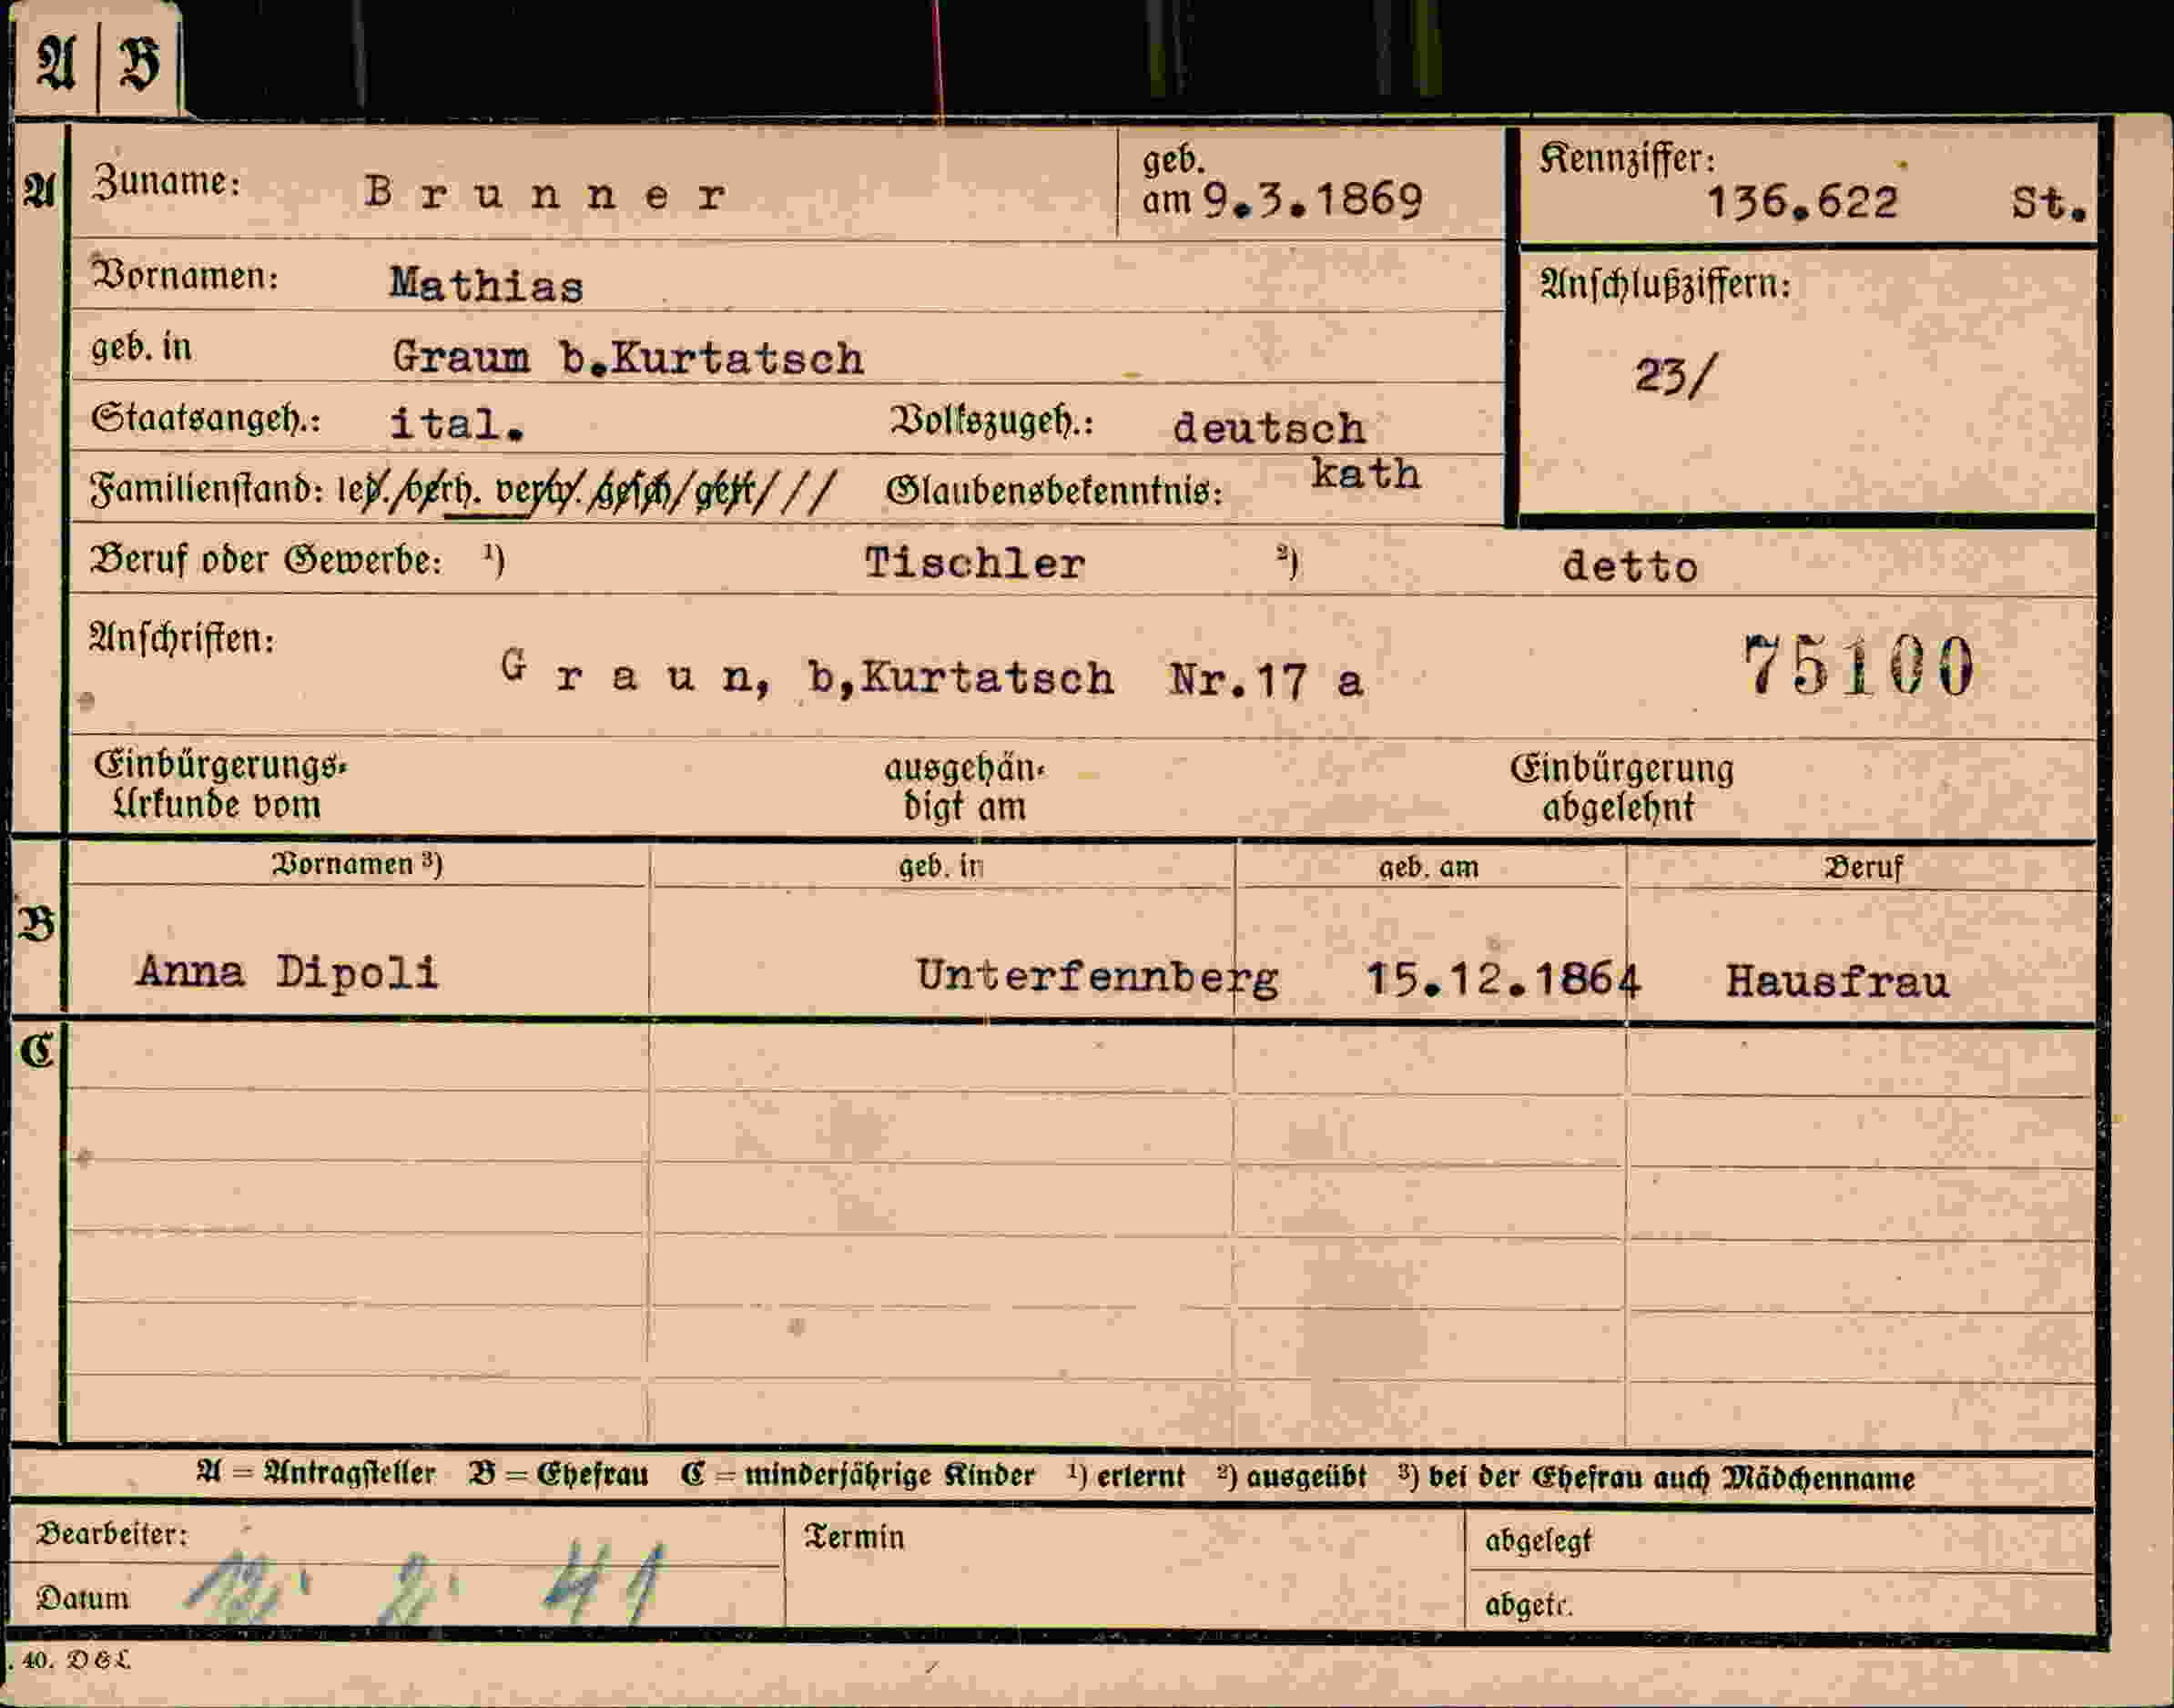 A | B
A Zuname: Brunner geb. am 9.3.1869 Kennziffer: 136.622 St.
Vornamen: Mathias Anschlußziffern:
geb. in Graum b.Kurtatsch 23/
Staatsangeh.: ital. Volkszugeh.: deutsch
Familienstand: led./verh. verw. gesch/getr/// Glaubensbekenntnis: kath
Beruf oder Gewerbe: ¹) Tischler ²) detto
Anschriften: Graun, b,Kurtatsch Nr.17 a 75100
Einbürgerungs- ausgehän- Einbürgerung
Urkunde vom digt am abgelehnt
Vornamen ³) geb. in geb. am Beruf
B
Anna Dipoli Unterfennberg 15.12.1864 Hausfrau
C
A = Antragsteller B = Ehefrau C = minderjährige Kinder ¹) erlernt ²) ausgeübt ³) bei der Ehefrau auch Mädchenname
Bearbeiter: Termin abgelegt
Datum 2. 41 abgetr.
. 40. D&L